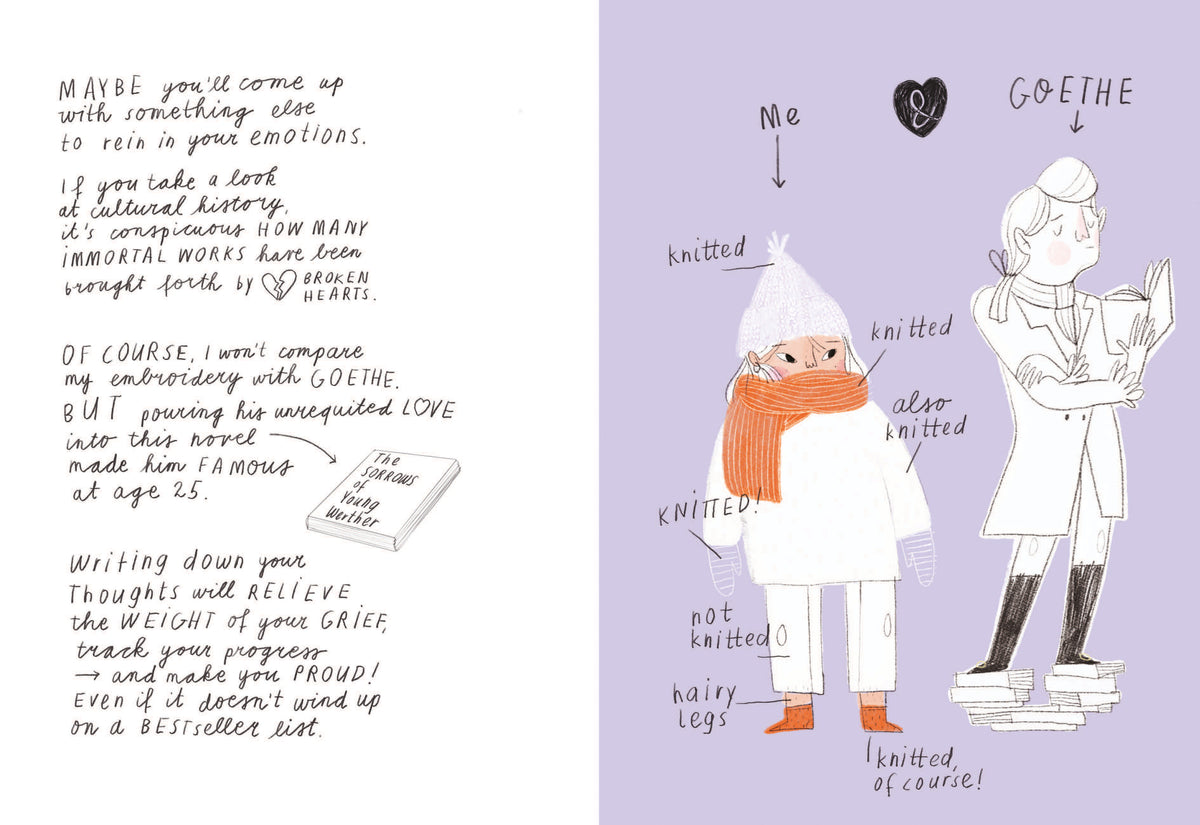 MAYBE you'll come up
with something else
to rein in your EMOTIONS.
If you take a look
at cultural history,
it's conspicuous HOW MANY
IMMORTAL WORKS have been
brought forth by BROKEN
HEARTS.
OF COURSE, I won't compare
my embroidery with GOETHE.
BUT pouring his unrequited LOVE
into this novel
made him FAMOUS
at age 25.
The
SORROWS
of
Young
Werther
Writing down your
Thoughts will RELIEVE
the WEIGHT of your GRIEF,
track your progress
→ and make you PROUD!
Even if it doesn't wind up
on a BESTseller list.
Me
&
GOETHE
knitted
knitted
also
knitted
KNITTED!
not
knitted
hairy
legs
knitted,
of course!